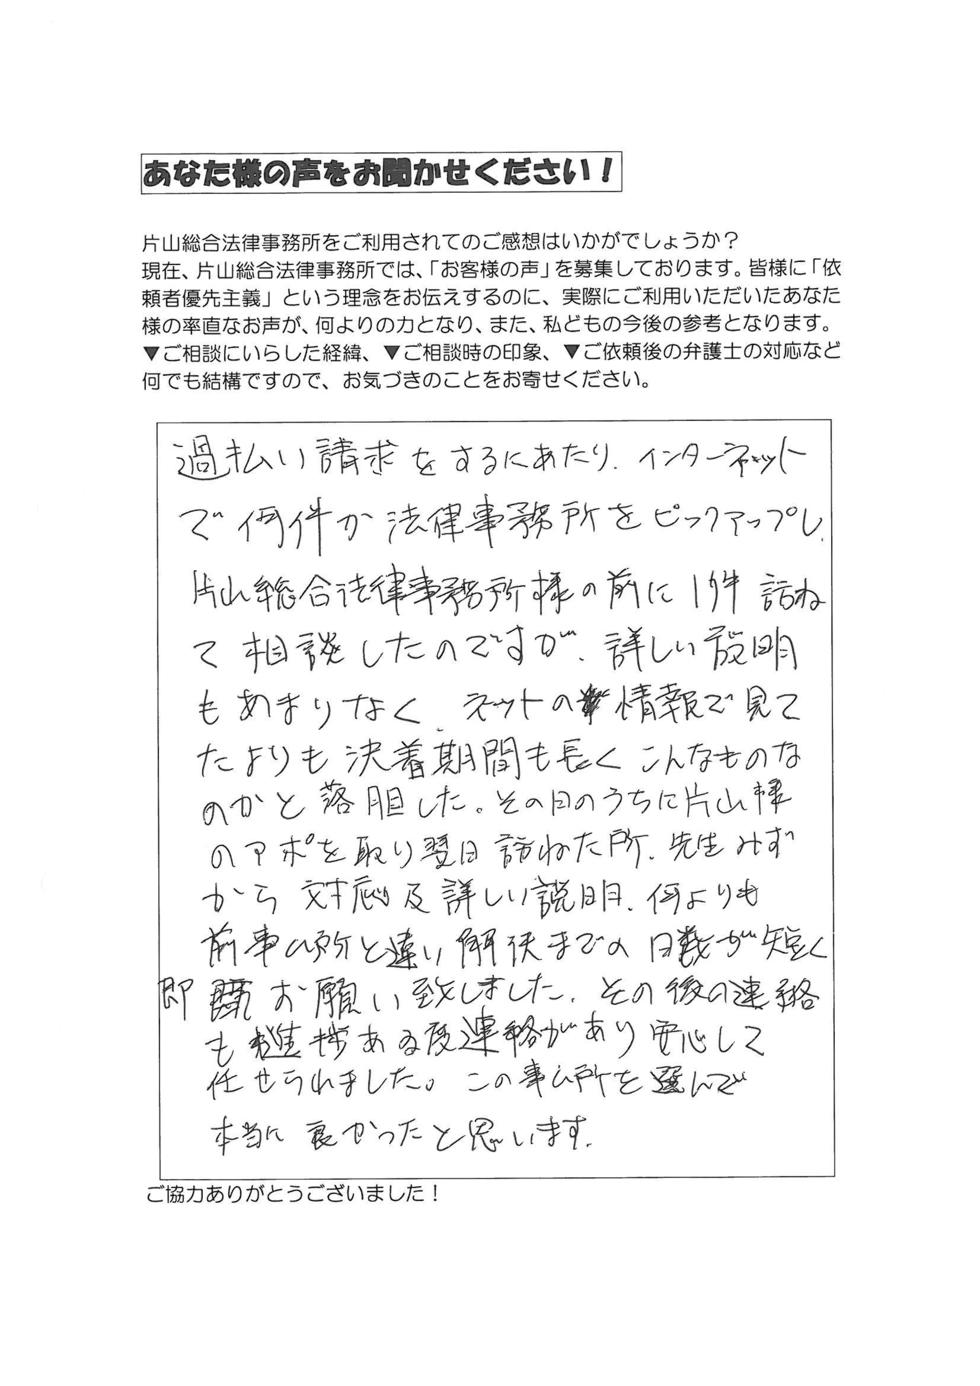 あなた様の声をお聞かせください！
片山総合法律事務所をご利用されてのご感想はいかがでしょうか？
現在、片山総合法律事務所では、「お客様の声」を募集しております。皆様に「依
頼者優先主義」という理念をお伝えするのに、実際にご利用いただいたあなた
様の率直なお声が、何よりの力となり、また、私どもの今後の参考となります。
▼ご相談にいらした経緯、▼ご相談時の印象、▼ご依頼後の弁護士の対応など
何でも結構ですので、お気づきのことをお寄せください。
過払い請求をするにあたり、インターネット
で何件か法律事務所をピックアップし、
片山総合法律事務所様の前に1件訪ね
て相談したのですが、詳しい説明
もあまりなく、ネットの情報で見て
たよりも決着期間も長くこんなものな
のかと落胆した。その日のうちに片山様
のアポを取り翌日訪ねた所、先生みず
から対応及詳しい説明、何よりも
前事ム所と違い解決までの日数が短く
即お願い致しました。その後の連絡
も進捗ある度連絡があり安心して
任せられました。この事ム所を選んで
本当に良かったと思います。
ご協力ありがとうございました！